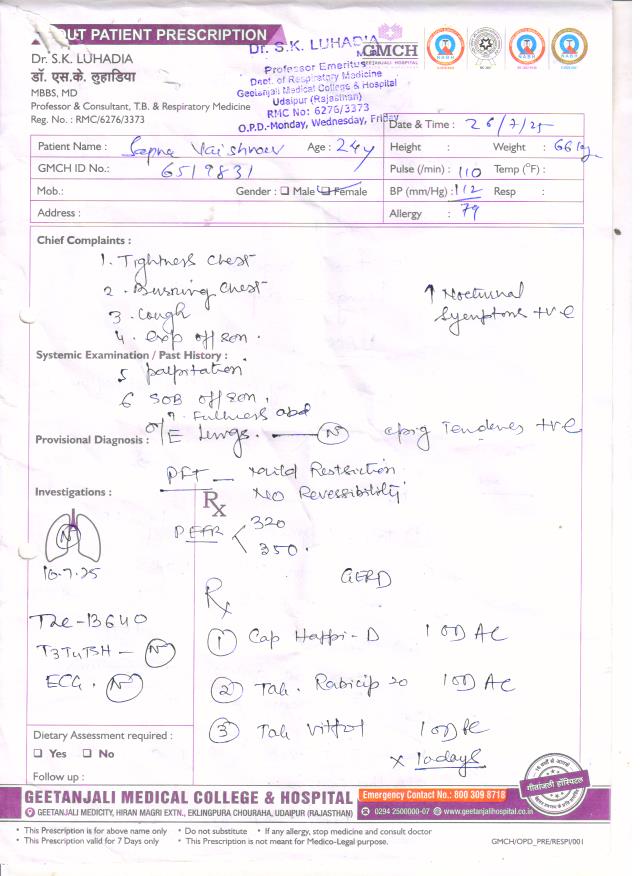 OUT PATIENT PRESCRIPTION
Dr. S.K. LUHADIA
डॉ. एस.के. लुहाडिया
MBBS, MD
Professor & Consultant, T.B. & Respiratory Medicine
Reg. No. : RMC/6276/3373
Dr. S.K. LUHADIA
M.D.
Professor Emeritus
Dept. of Respiratory Medicine
Geetanjali Medical College & Hospital
Udaipur (Rajasthan)
RMC No: 6276/3373
O.P.D.-Monday, Wednesday, Friday
GMCH
GEETANJALI HOSPITAL
NABH
NABH
NABH
Date & Time : 26/7/25
Patient Name : Sapna Vaishnav Age : 24y
Height : Weight : 66kg
GMCH ID No.: 6519831
Pulse (/min) : 110 Temp (°F) :
Mob.: Gender : Male Female
BP (mm/Hg) : 112 Resp :
79
Address :
Allergy :
Chief Complaints :
1. Tightness chest
2. Burning chest
3. Cough
4. exp off son.
↑ Nocturnal
Symptoms +ve
Systemic Examination / Past History :
5 palpitation
6 SOB off son.
7. Fullness abd
Provisional Diagnosis :
O/E Lungs. — N epig Tendernes +ve
PFT — Mild Restriction
No Reversibility
Investigations :
Rx
PEFR < 320
350.
N
10.7.25
GERD
Rx
TLC-13640
T3T4TSH — N
ECG. N
① Cap Happi-D 1 OD AC
② Tab. Rabicip 20 1 OD AC
③ Tab 1 OD
x 10days
Dietary Assessment required :
Yes No
Follow up :
गीतांजली हॉस्पिटल
GEETANJALI MEDICAL COLLEGE & HOSPITAL
Emergency Contact No.: 800 309 8718
GEETANJALI MEDICITY, HIRAN MAGRI EXTN., EKLINGPURA CHOURAHA, UDAIPUR (RAJASTHAN)
0294 2500000-07 www.geetanjalihospital.co.in
• This Prescription is for above name only • Do not substitute • If any allergy, stop medicine and consult doctor
• This Prescription valid for 7 Days only • This Prescription is not meant for Medico-Legal purpose.
GMCH/OPD_PRE/RESPI/001